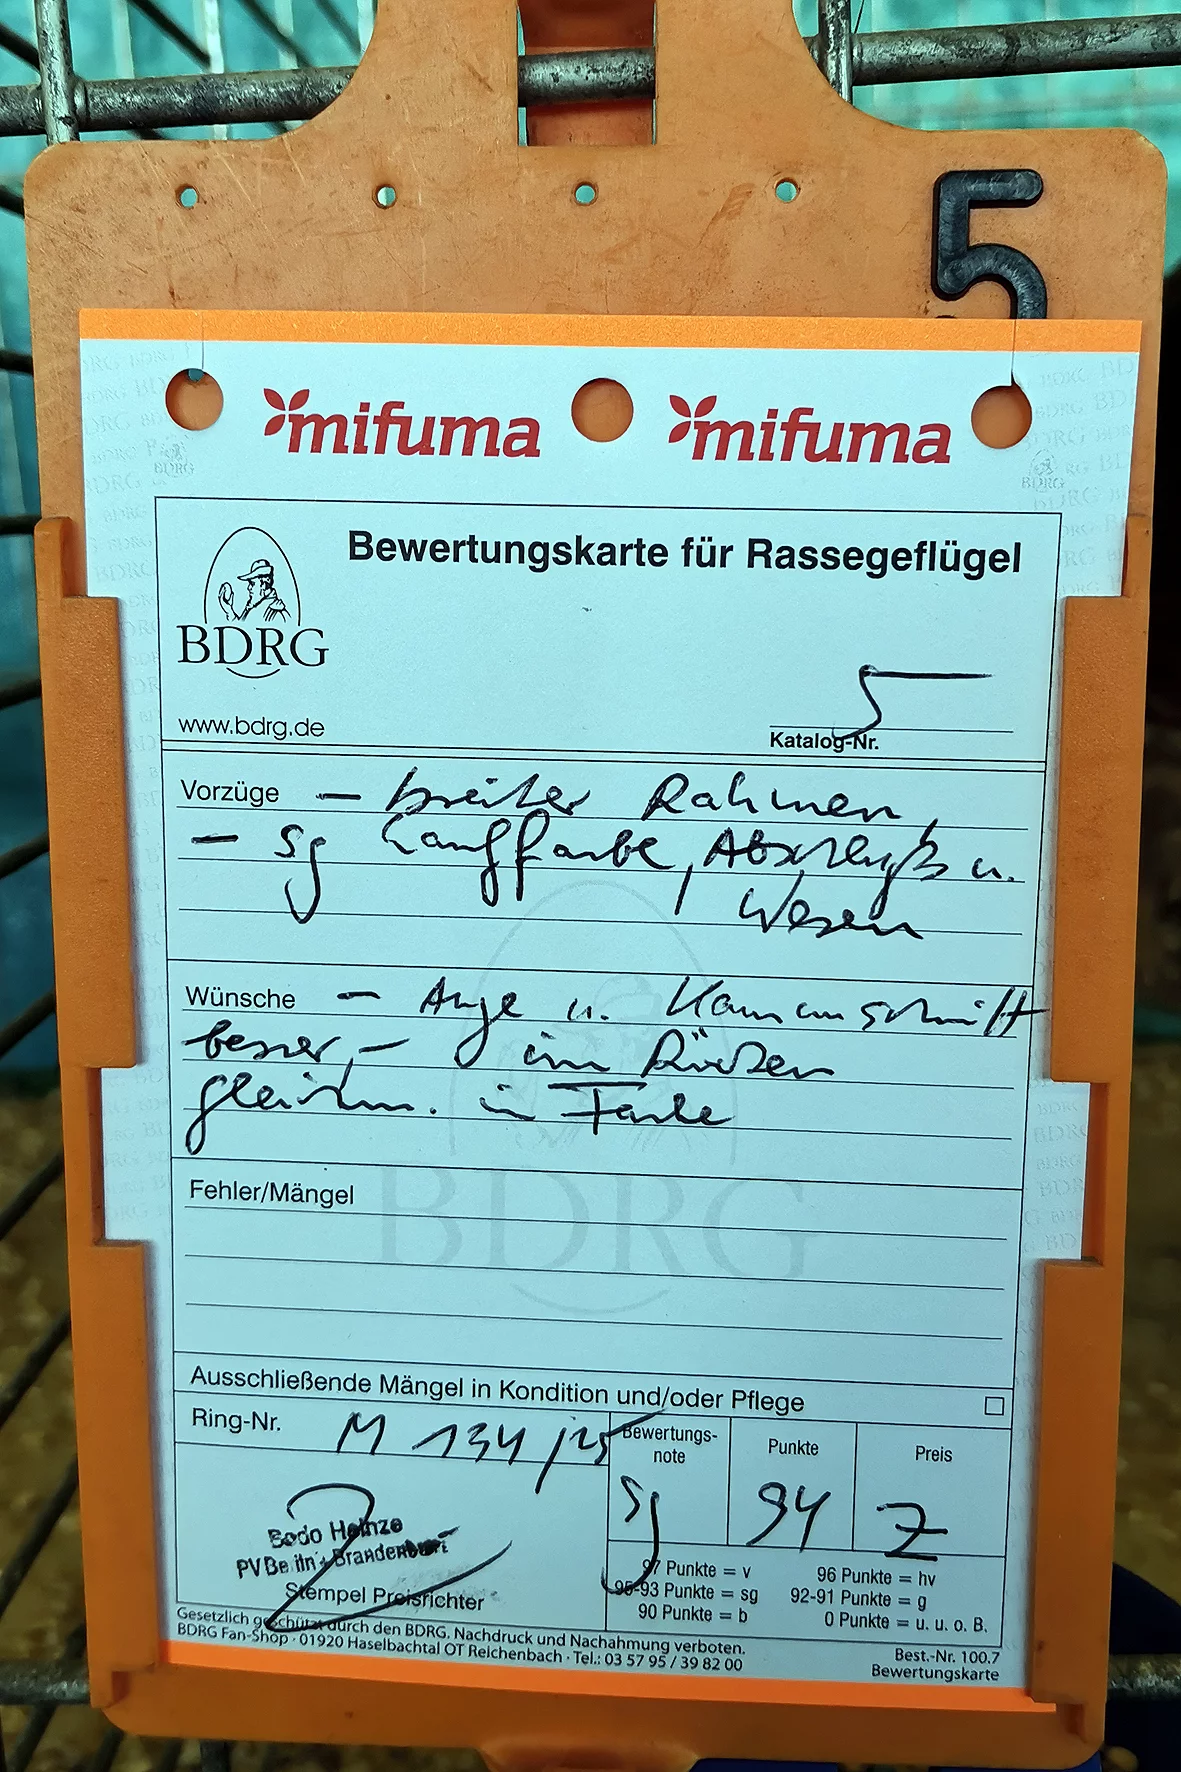 5
mifuma mifuma
Bewertungskarte für Rassegeflügel
BDRG
www.bdrg.de
5
Katalog-Nr.
Vorzüge - breiter Rahmen,
- sg Lauffarbe, u.
Wesen
Wünsche - Auge u. Kammschnitt
besser, - im Rücken
gleichm. in Farbe
BDRG
Fehler/Mängel
Ausschließende Mängel in Kondition und/oder Pflege
Ring-Nr. M 134/25
Bewertungs-note Punkte Preis
sg 94 Z
Bodo Heinze
PV Berlin + Brandenburg
Stempel Preisrichter
97 Punkte = v 96 Punkte = hv
95-93 Punkte = sg 92-91 Punkte = g
90 Punkte = b 0 Punkte = u. u. o. B.
Gesetzlich geschützt durch den BDRG. Nachdruck und Nachahmung verboten.
BDRG Fan-Shop · 01920 Haselbachtal OT Reichenbach · Tel.: 03 57 95 / 39 82 00
Best.-Nr. 100.7
Bewertungskarte